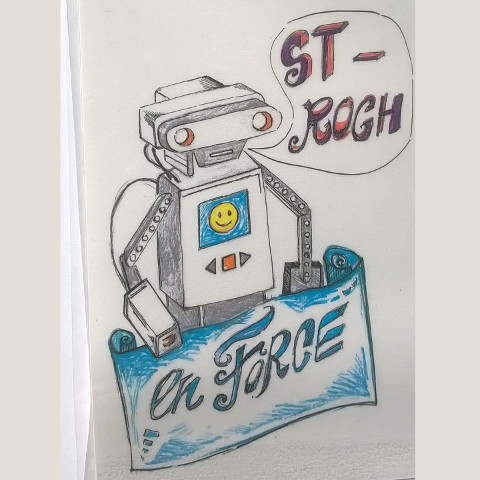 ST-
ROGH
en FORCE